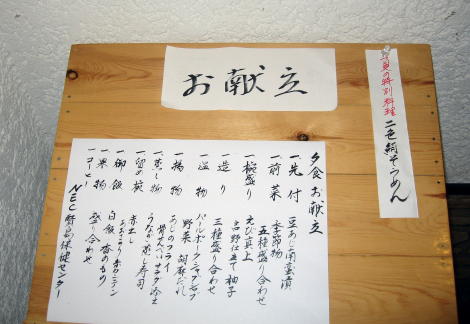 お献立
本日の特別料理
二色絹そうめん
夕食お献立
一、先付 豆あじ南蛮漬
一、前菜 季節物
五種盛り合わせ
一、椀盛り えび真上
吉野仕立て 柚子
一、造り 三種盛り合わせ
一、温物
野菜 胡麻だれ
一、揚物 あじのフライ
一、蒸し物 うなぎ蒸し寿司
一、留め椀 赤出し
一、御飯 白飯 香のもの
一、果物 盛り合わせ
一、コーヒー
NEC 熱海保健センター